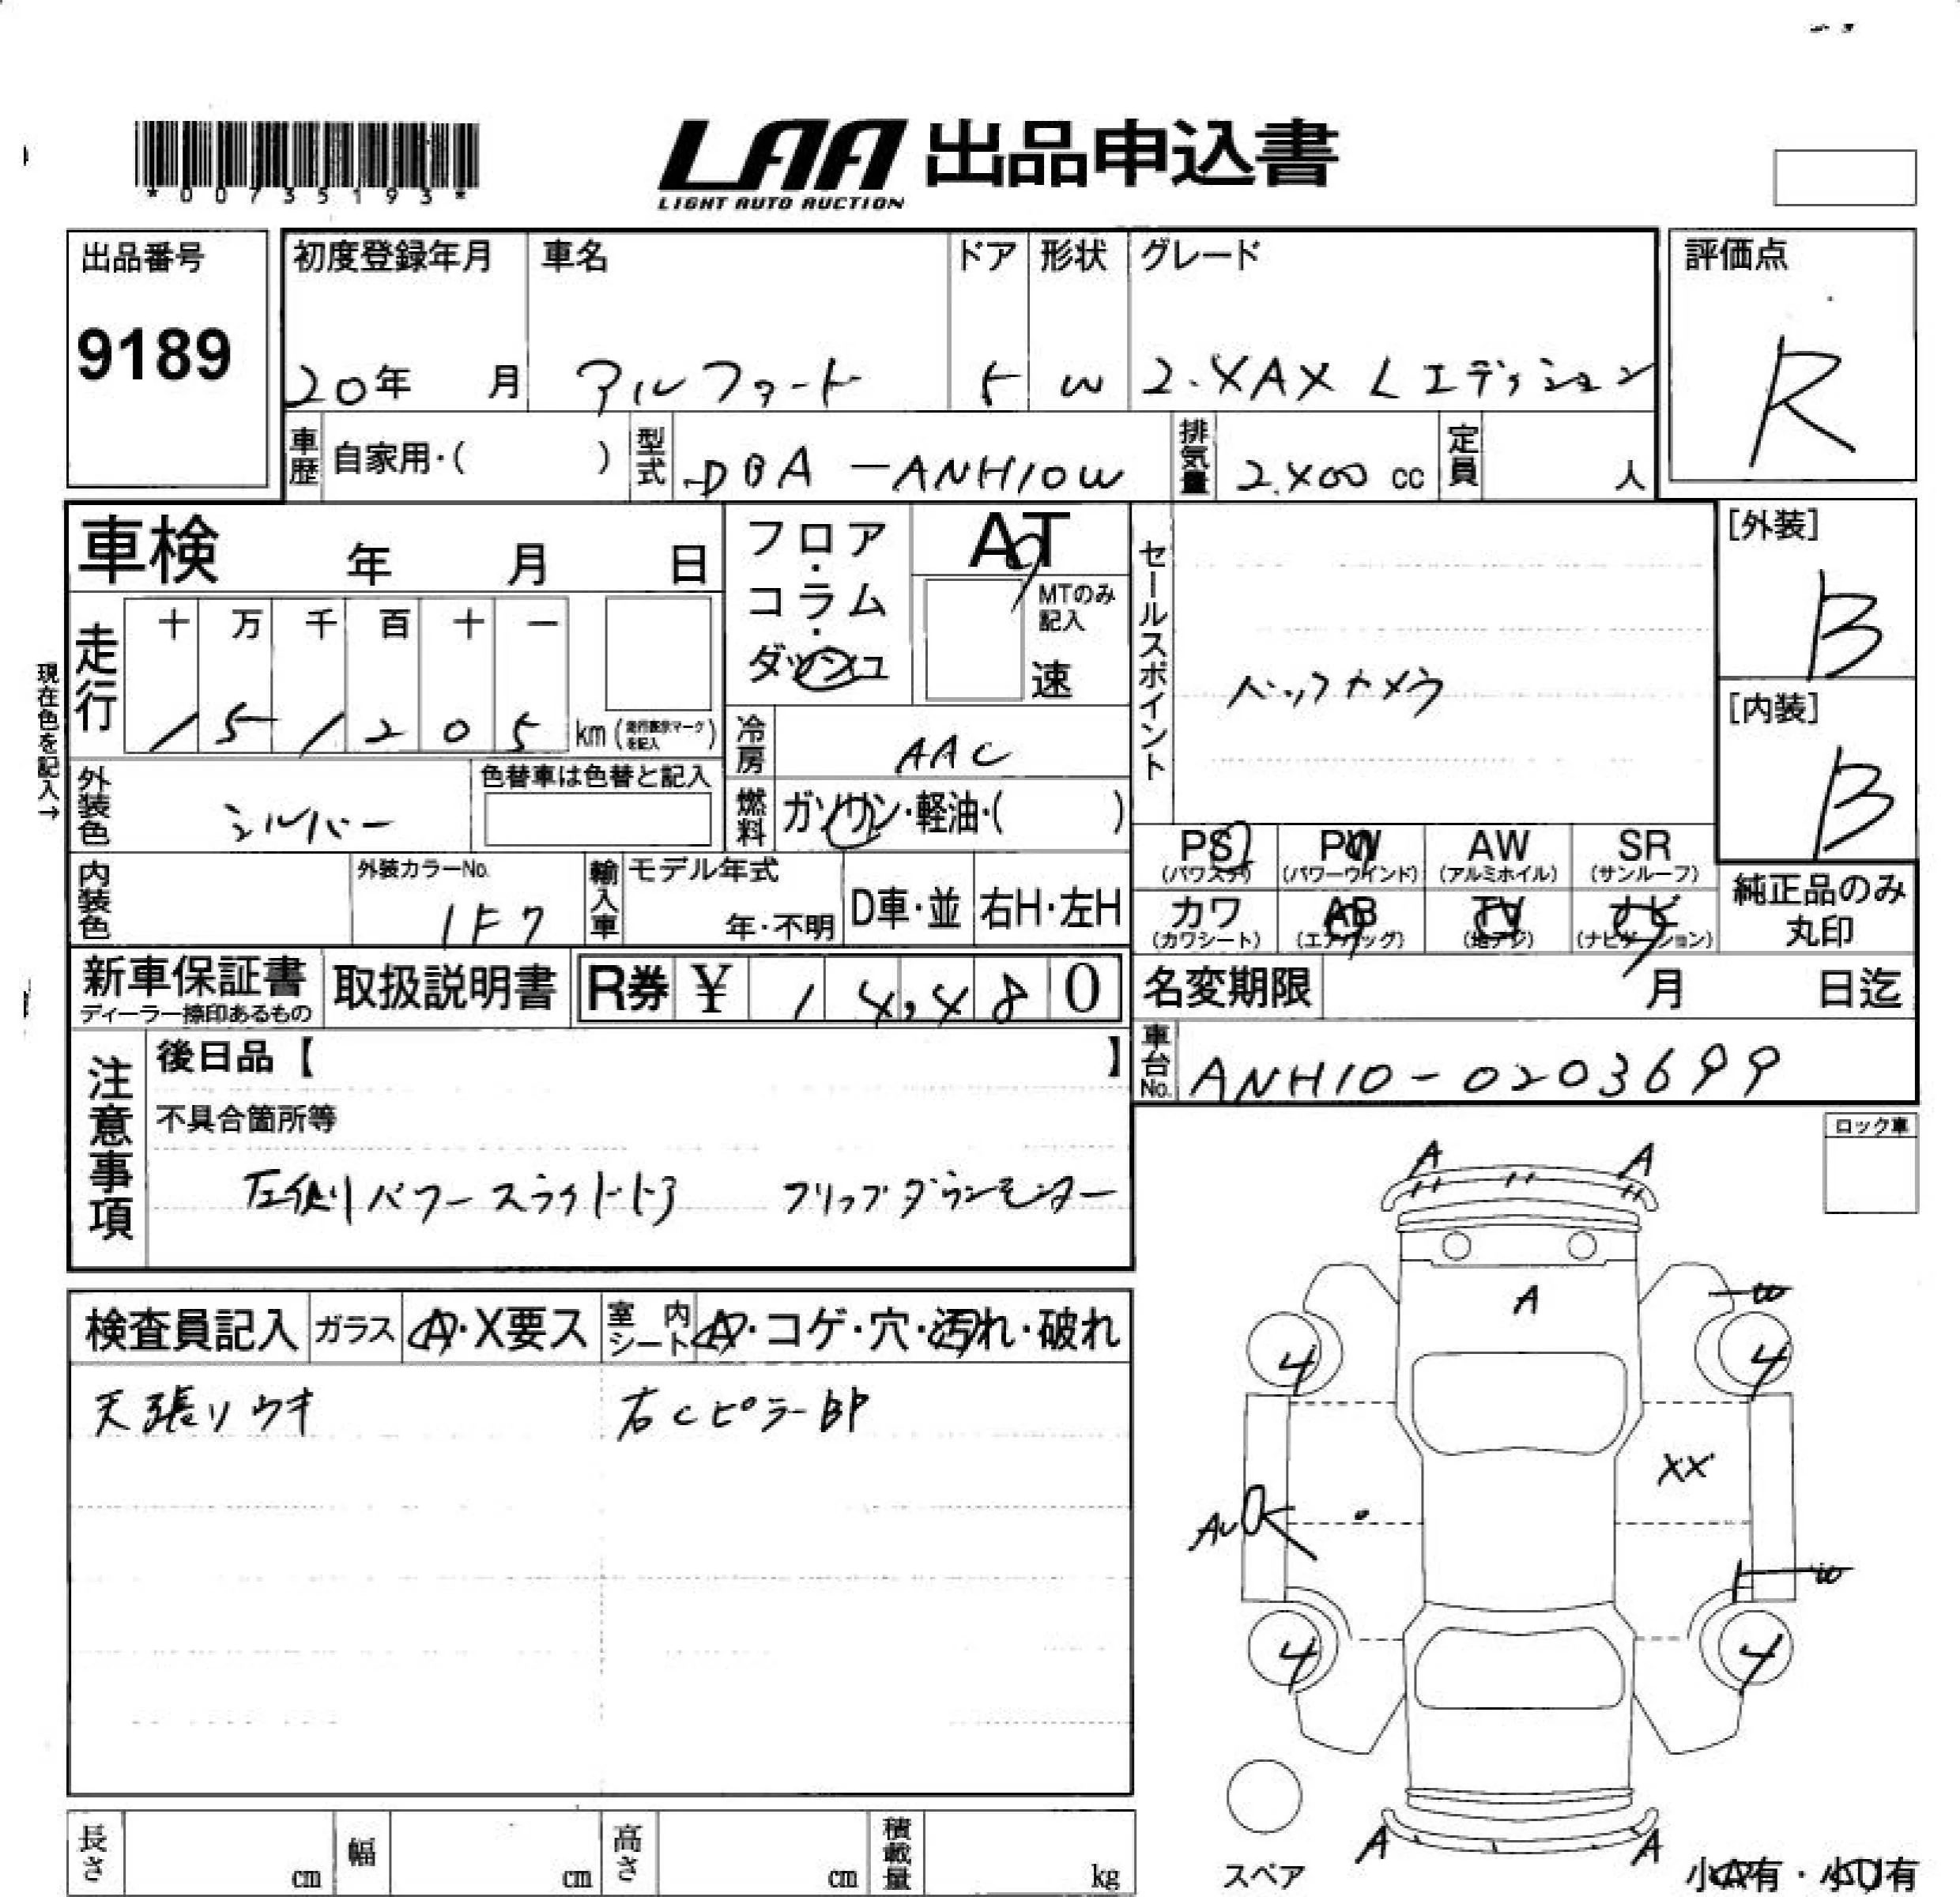 *00735193*
LAA 出品申込書
LIGHT AUTO AUCTION
出品番号
9189
初度登録年月
20年 月
車名
アルファード
ドア
5
形状
W
グレード
2.4AX Lエディション
評価点
R
車歴
自家用・( )
型式
DBA-ANH10W
排気量
2,400 cc
定員
人
車検 年 月 日
フロア・コラム・ダッシュ
AT
MTのみ記入
速
セールスポイント
バックカメラ
[外装]
B
[内装]
B
現在色を記入→
走行
十 万 千 百 十 一
1 5 1 2 0 5 km (走行表示マークを記入)
冷房
AAC
外装色
シルバー
色替車は色替と記入
燃料
ガソリン・軽油・( )
PS
(パワステ)
PW
(パワーウインド)
AW
(アルミホイル)
SR
(サンルーフ)
カワ
(カワシート)
AB
(エアバッグ)
TV
(地デジ)
ナビ
(ナビゲーション)
純正品のみ
丸印
内装色
外装カラーNo.
1F7
輸入車
モデル年式
年・不明
D車・並
右H・左H
新車保証書
ディーラー捺印あるもの
取扱説明書
R券 ¥ 14,480
名変期限 月 日迄
車台No.
ANH10-0203699
注意事項
後日品【 】
不具合箇所等
左側パワースライドドア フリップダウンモニター
ロック車
検査員記入
ガラス
A・X要ス
室内シート
A・コゲ・穴・汚れ・破れ
天張りウキ
右CピラーBP
A A
A
W
4 4
XX
AU
W
4 4
A A
スペア
小A有・小U有
長さ cm
幅 cm
高さ cm
積載量 kg